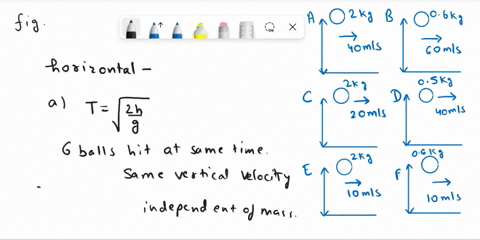 fig.
horizontal -
a) T = √2h/g
6 balls hit at same time.
Same vertical velocity
independent of mass.
A 2kg
40m/s
B 0.6kg
60m/s
C 2kg
20m/s
D 0.5kg
40m/s
E 2kg
10m/s
F 0.6kg
10m/s